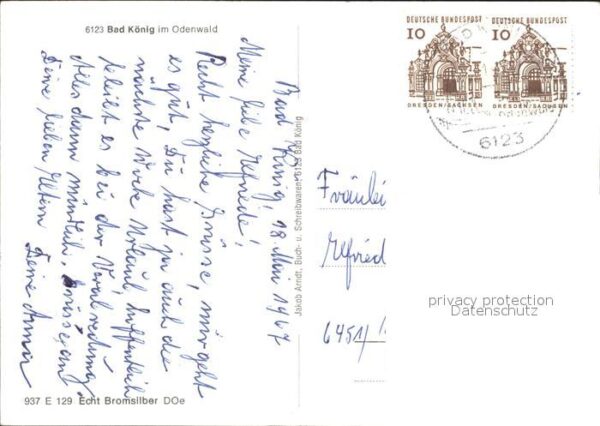 6123 Bad König im Odenwald
Bad König, 18. Mai 1967
Meine liebe Elfriede!
Recht herzliche Grüsse, mir geht
es gut, Du hast ja auch die
nächste Woche Urlaub, hoffentlich
bleibt es bei der Verabredung
Alles dann mündlich, Grüsse an
Deine lieben Eltern Deine Anna
937 E 129 Echt Bromsilber DOe
Jakob Arndt, Buch- u. Schreibwaren, 6123 Bad König
DEUTSCHE BUNDESPOST DEUTSCHE BUNDESPOST
10 10
DRESDEN/SACHSEN DRESDEN/SACHSEN
6123
Fräulei
Elfried
6451/
privacy protection
Datenschutz